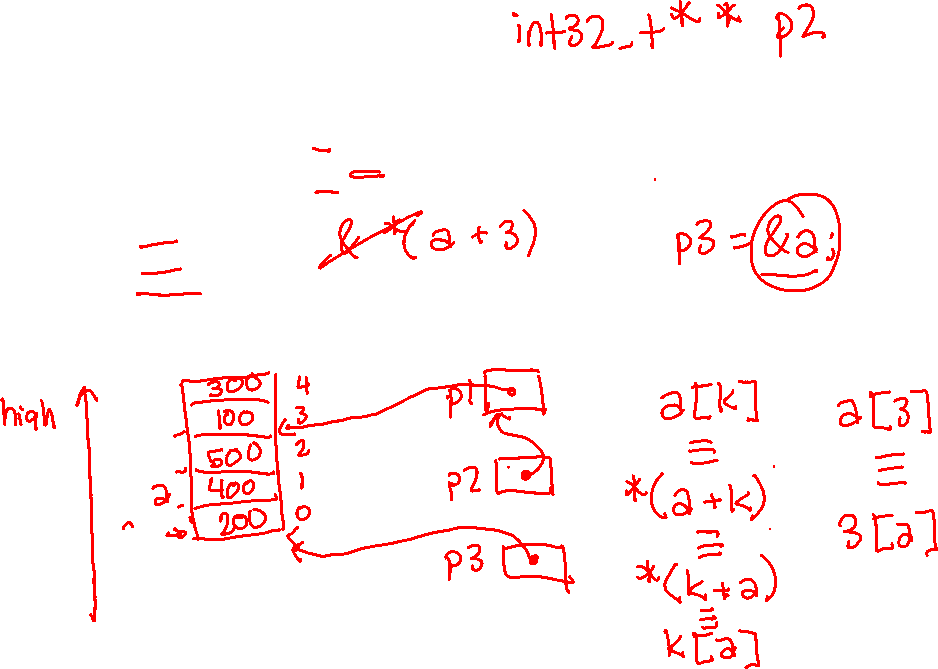 int32_t** p2
≡ & *(a + 3) p3 = &a;
high
300 4
100 3
500 2
a 400 1
200 0
p1
p2
p3
a[k]
≡
*(a+k)
≡
*(k+a)
≡
k[a]
a[3]
≡
3[a]